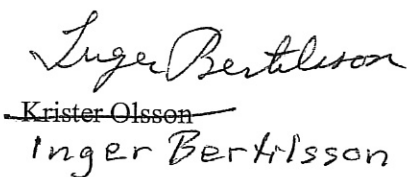 Inger Bertilsson
Krister Olsson
Inger Bertilsson